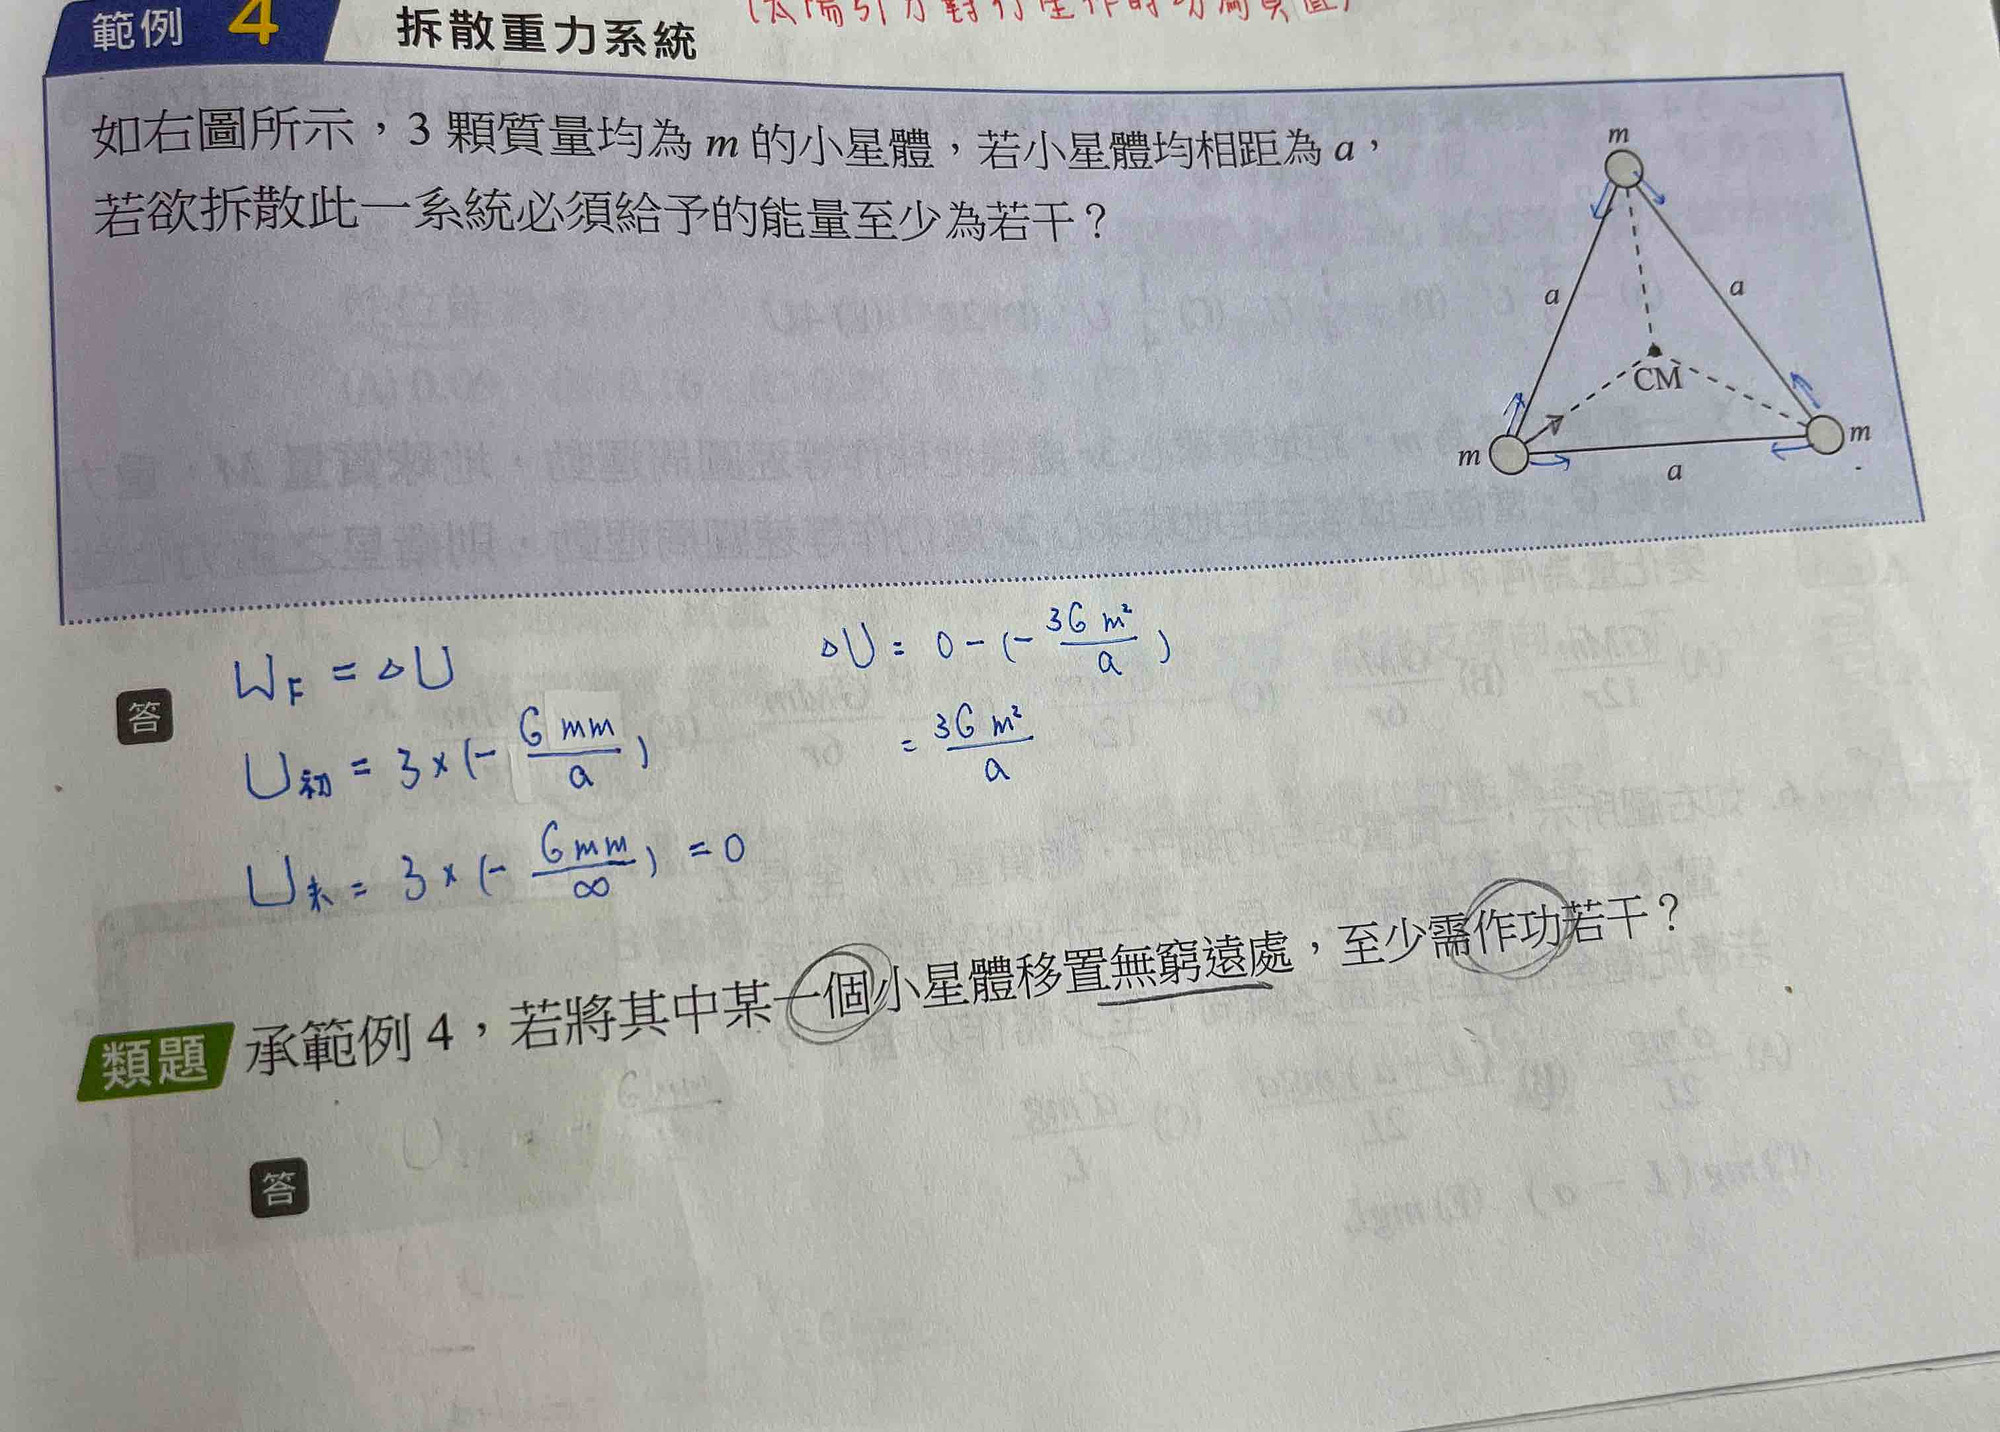 範例 4 拆散重力系統
如右圖所示，3 顆質量均為 m 的小星體，若小星體均相距為 a，
若欲拆散此一系統必須給予的能量至少為若干？
m
a
a
CM
m
m
a
答
W_F = △U
U初 = 3×(-Gmm/a)
U末 = 3×(-Gmm/∞) = 0
△U = 0-(-3Gm²/a)
= 3Gm²/a
類題 承範例 4，若將其中某一個小星體移置無窮遠處，至少需作功若干？
答